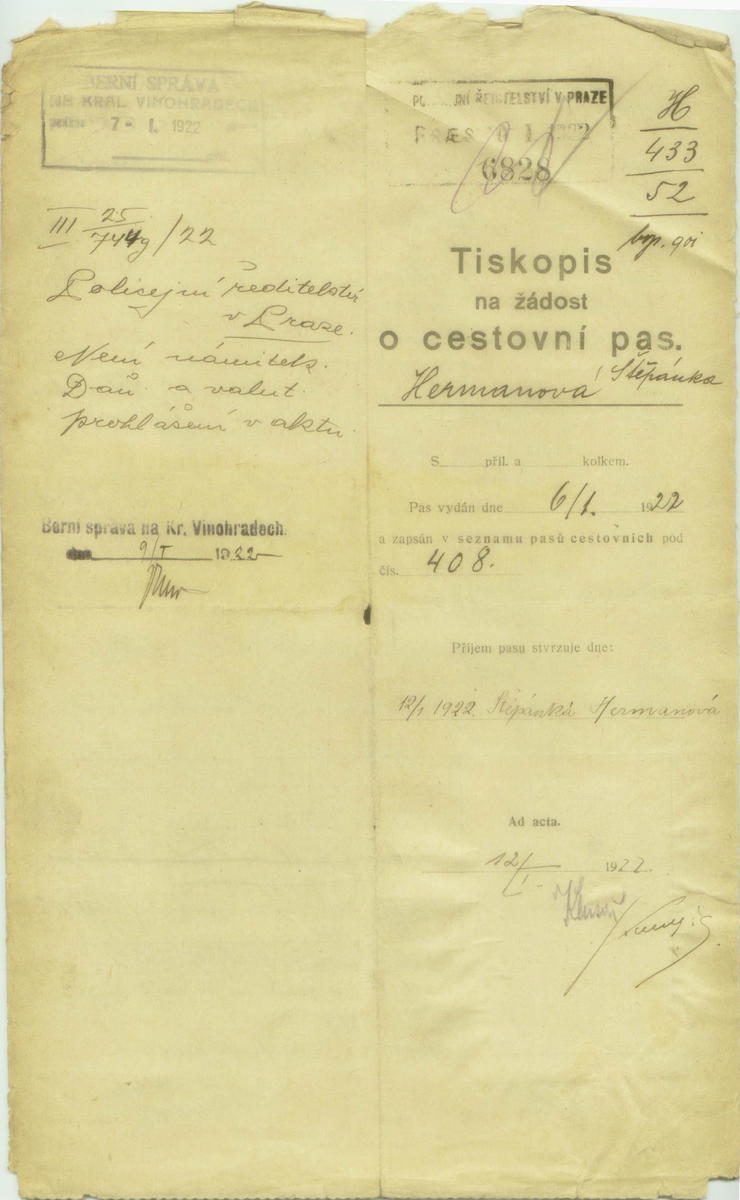 BERNÍ SPRÁVA
NA KRÁL. VINOHRADECH
7 - I. 1922
III 25/744g /22
Policejní ředitelství
v Praze.
Není námitek.
Daň. a valut.
prohlášení v aktu.
Berní správa na Kr. Vinohradech.
dne 9/I 1922
ŘEDITELSTVÍ V PRAZE
PRAES 1922
6828
H
433
52
Tiskopis
na žádost
o cestovní pas.
Hermanová Štěpánka
S příl. a kolkem.
Pas vydán dne 6/1. 1922
a zapsán v seznamu pasů cestovních pod
čís. 408.
Příjem pasu stvrzuje dne:
12/1 1922. Štěpánká Hermanová
Ad acta.
12/I. 1922.